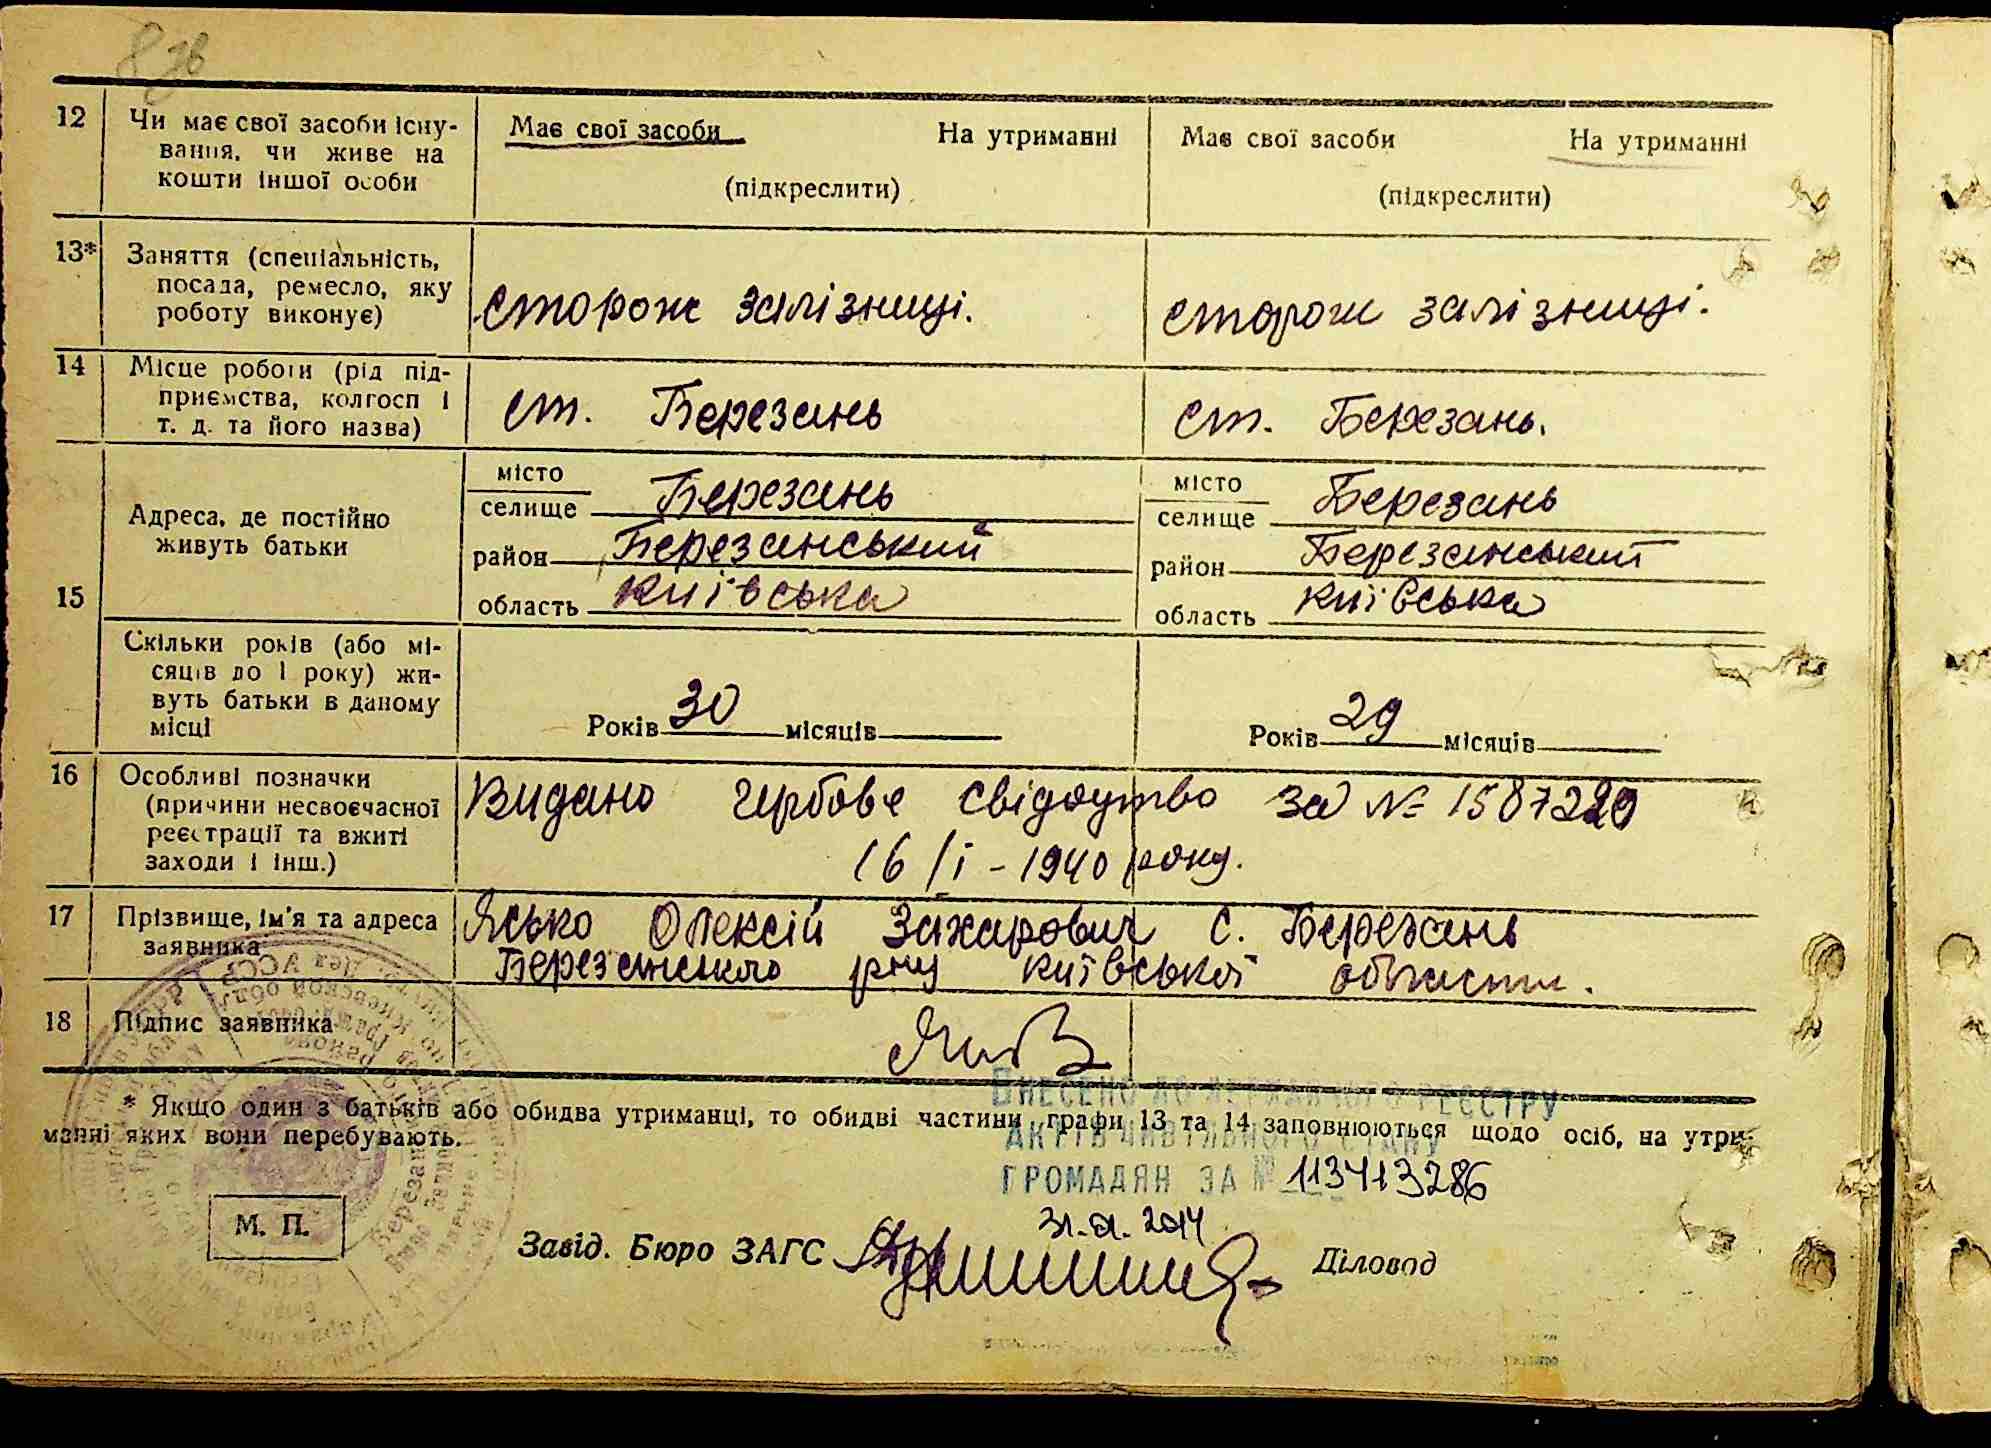 8 зв
12 Чи має свої засоби існу-
вання, чи живе на
кошти іншої особи
Має свої засоби На утриманні
(підкреслити)
Має свої засоби На утриманні
(підкреслити)
13* Заняття (спеціальність,
посада, ремесло, яку
роботу виконує)
сторож залізниці.
сторож залізниці.
14 Місце роботи (рід під-
приємства, колгосп і
т. д. та його назва)
ст. Березань
ст. Березань.
15 Адреса, де постійно
живуть батьки
місто
селище Березань
район Березанський
область київська
місто
селище Березань
район Березанський
область київська
Скільки років (або мі-
сяців до 1 року) жи-
вуть батьки в даному
місці
Років 30 місяців
Років 29 місяців
16 Особливі позначки
(причини несвоєчасної
реєстрації та вжиті
заходи і інш.)
Видано гербове свідоцтво за № 1587220
16/I - 1940 року.
17 Прізвище, ім'я та адреса
заявника
Ясько Олексій Захарович с. Березань
Березанського р-ну київської области.
18 Підпис заявника
* Якщо один з батьків або обидва утриманці, то обидві частини графи 13 та 14 заповнюються щодо осіб, на утри-
манні яких вони перебувають.
ВНЕСЕНО ДО ДЕРЖАВНОГО РЕЄСТРУ
АКТІВ ЦИВІЛЬНОГО СТАНУ
ГРОМАДЯН ЗА № 113413286
31.01.2014
М. П.
Завід. Бюро ЗАГС
Діловод